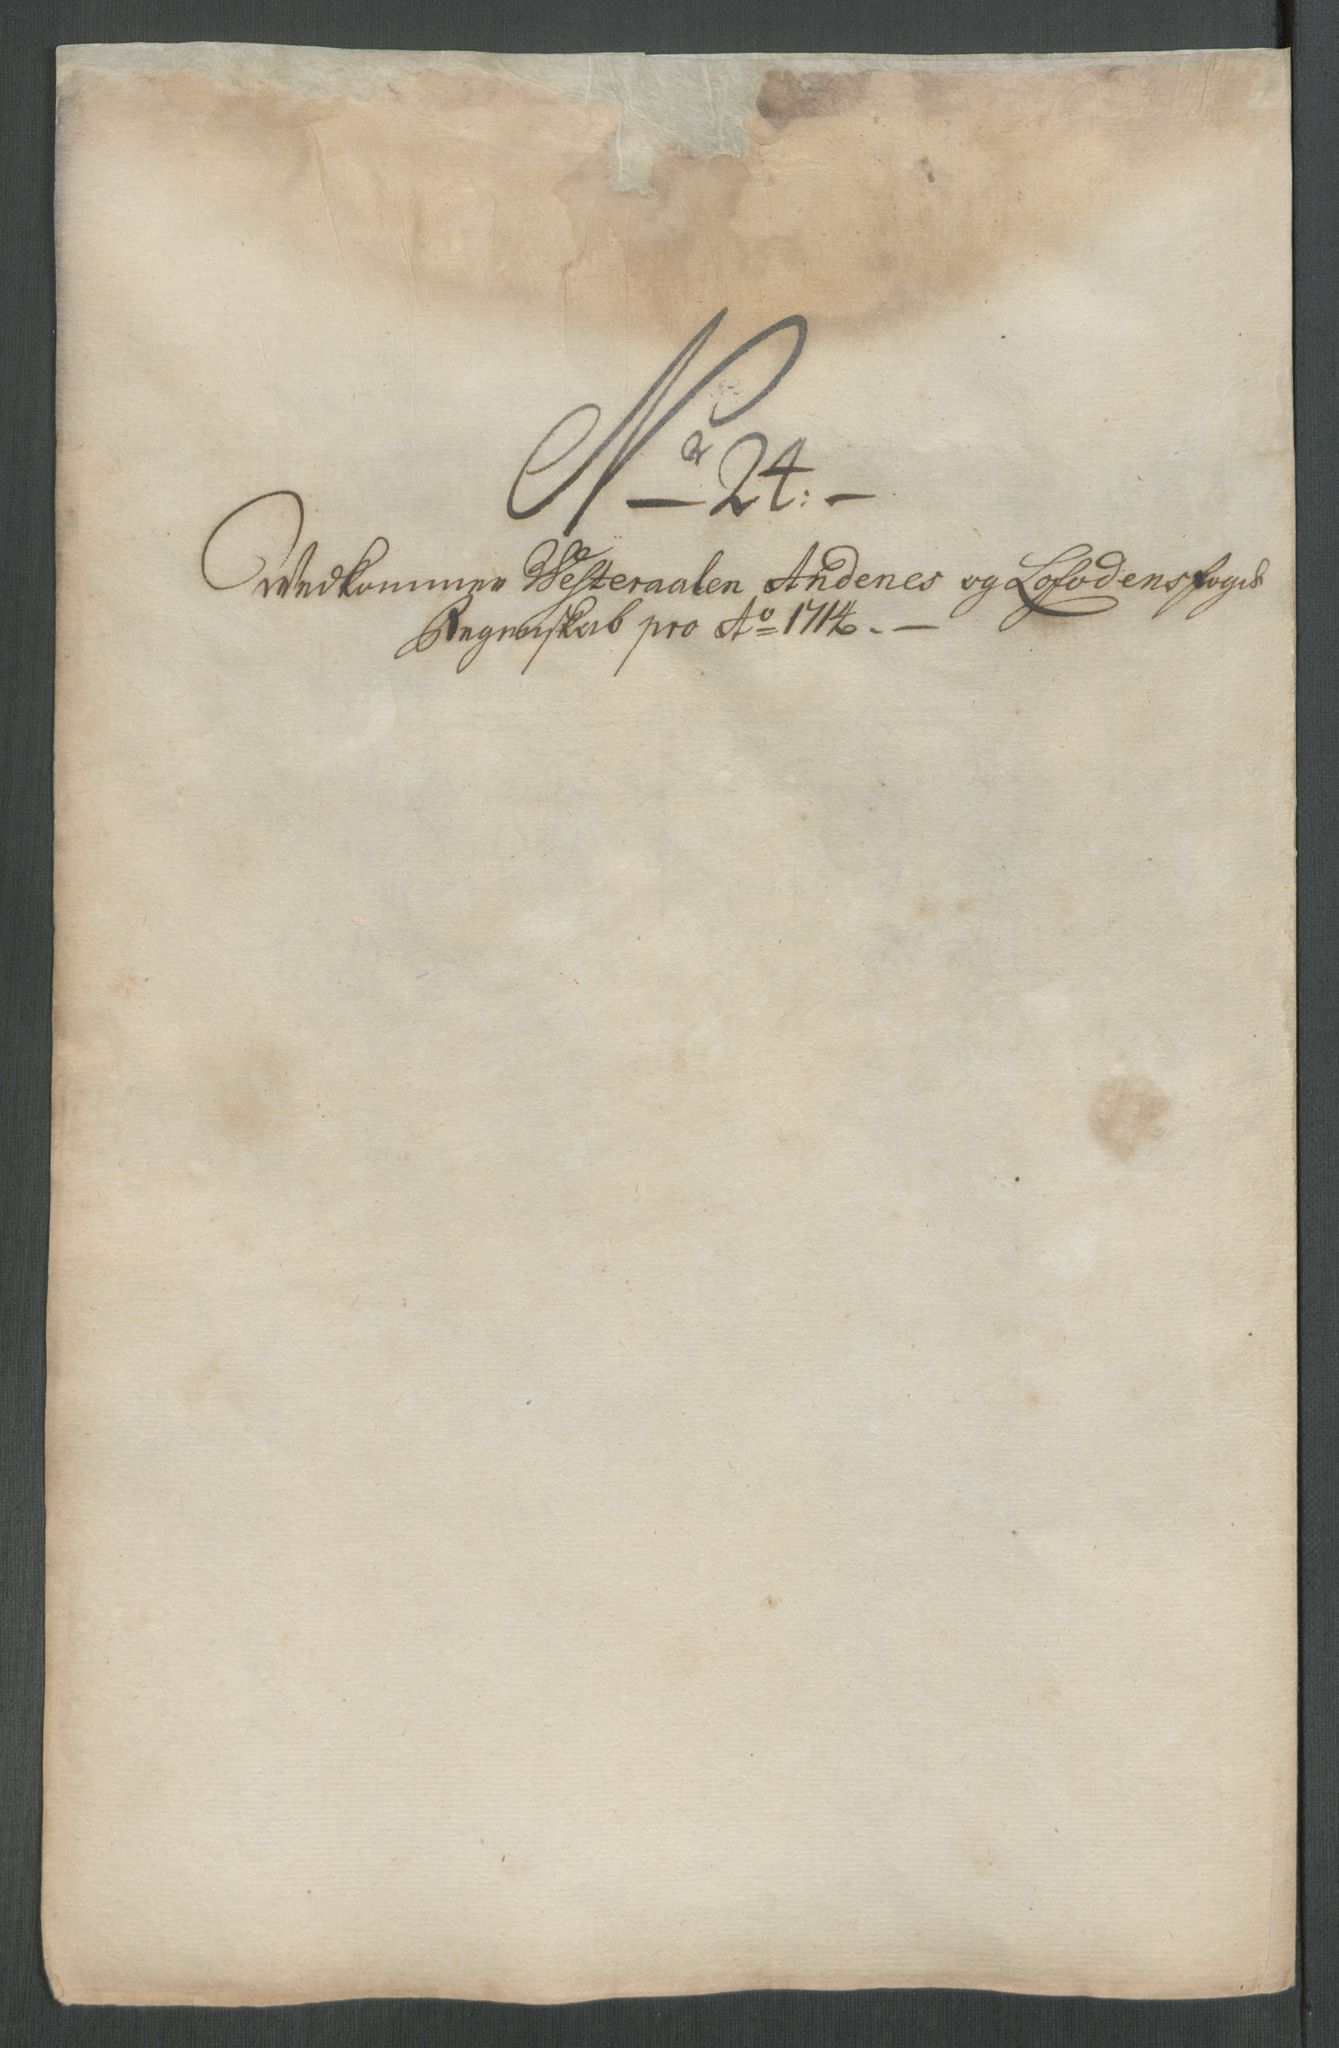 Nr 24:
Wedkommer Westeraalen Andenes og Lofodens fogd
Regenskab pro Ao 1714.